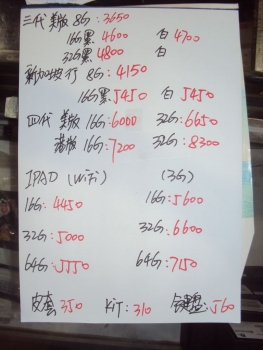 三代美版 8G:3650
16G黑4600 白4700
32G黑4800 白
新加坡行 8G:4150
16G黑5450 白5450
四代 美版 16G:6000 32G:6650
港版 16G:7200 32G:8300
IPAD (WiFi) (3G)
16G:4450 16G:5600
32G:5000 32G:6600
64G:5550 64G:7150
皮套:350 KiT:310 键盘:560